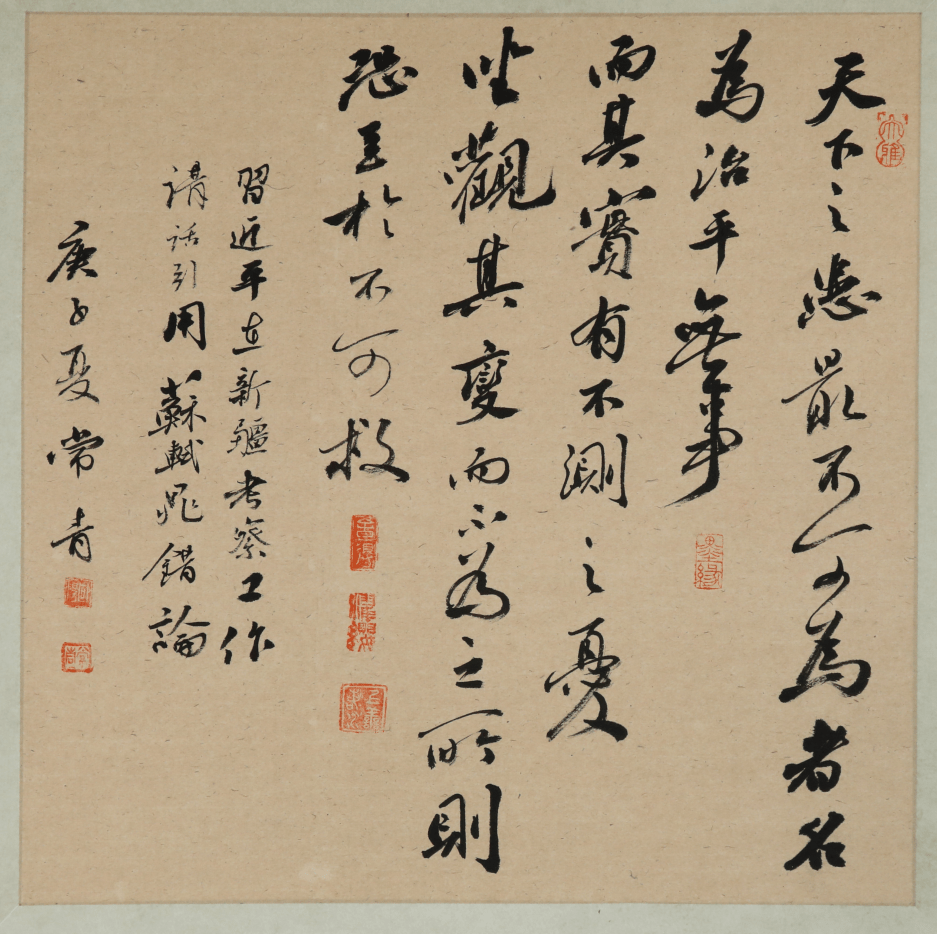 天下之患最不可為者名
為治平無事
而其實有不測之憂
坐觀其變而不為之所則
恐至於不可救
習近平在新疆考察工作
講話引用蘇軾晁錯論
庚子夏常青